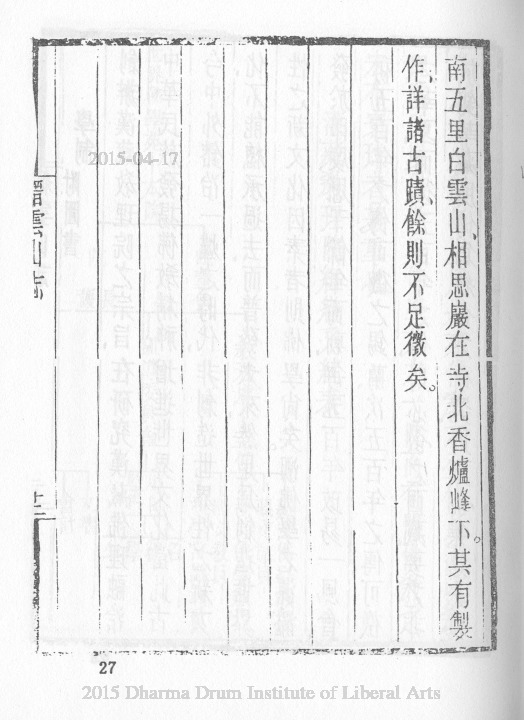 南五里白雲山、相思巖在寺北香爐峰下。其有製
作、詳諸古蹟、餘則不足徵矣。
縉雲山志
十二
27
2015-04-17
2015 Dharma Drum Institute of Liberal Arts